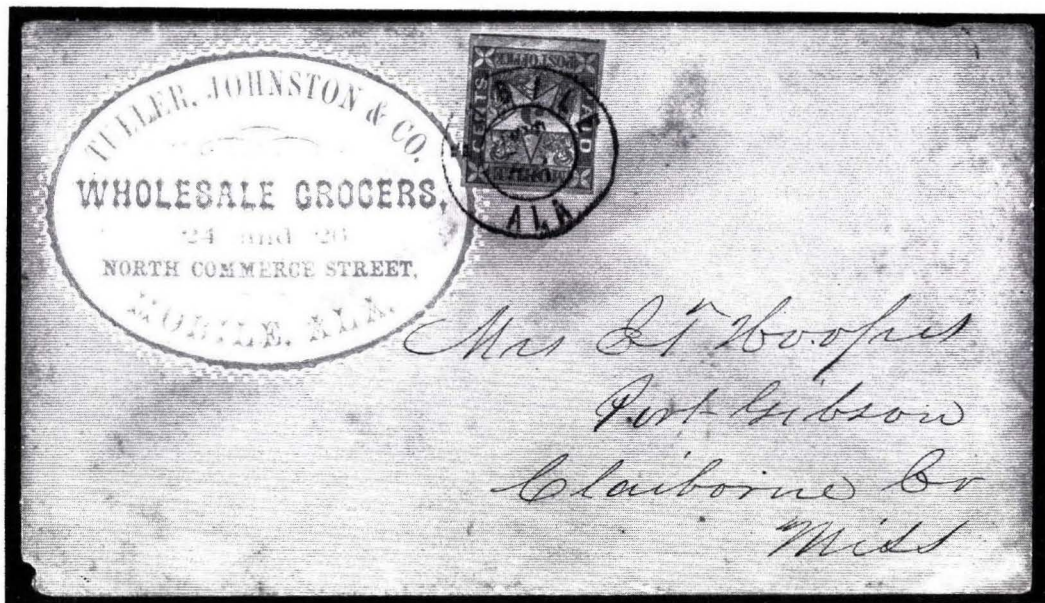 TULLER, JOHNSTON & CO.
WHOLESALE GROCERS,
24 and 26
NORTH COMMERCE STREET,
MOBILE, ALA.
POST OFFICE
PAID
CENTS
MOBILE
ALA
Mrs
Port Gibson
Claiborne Co
Miss